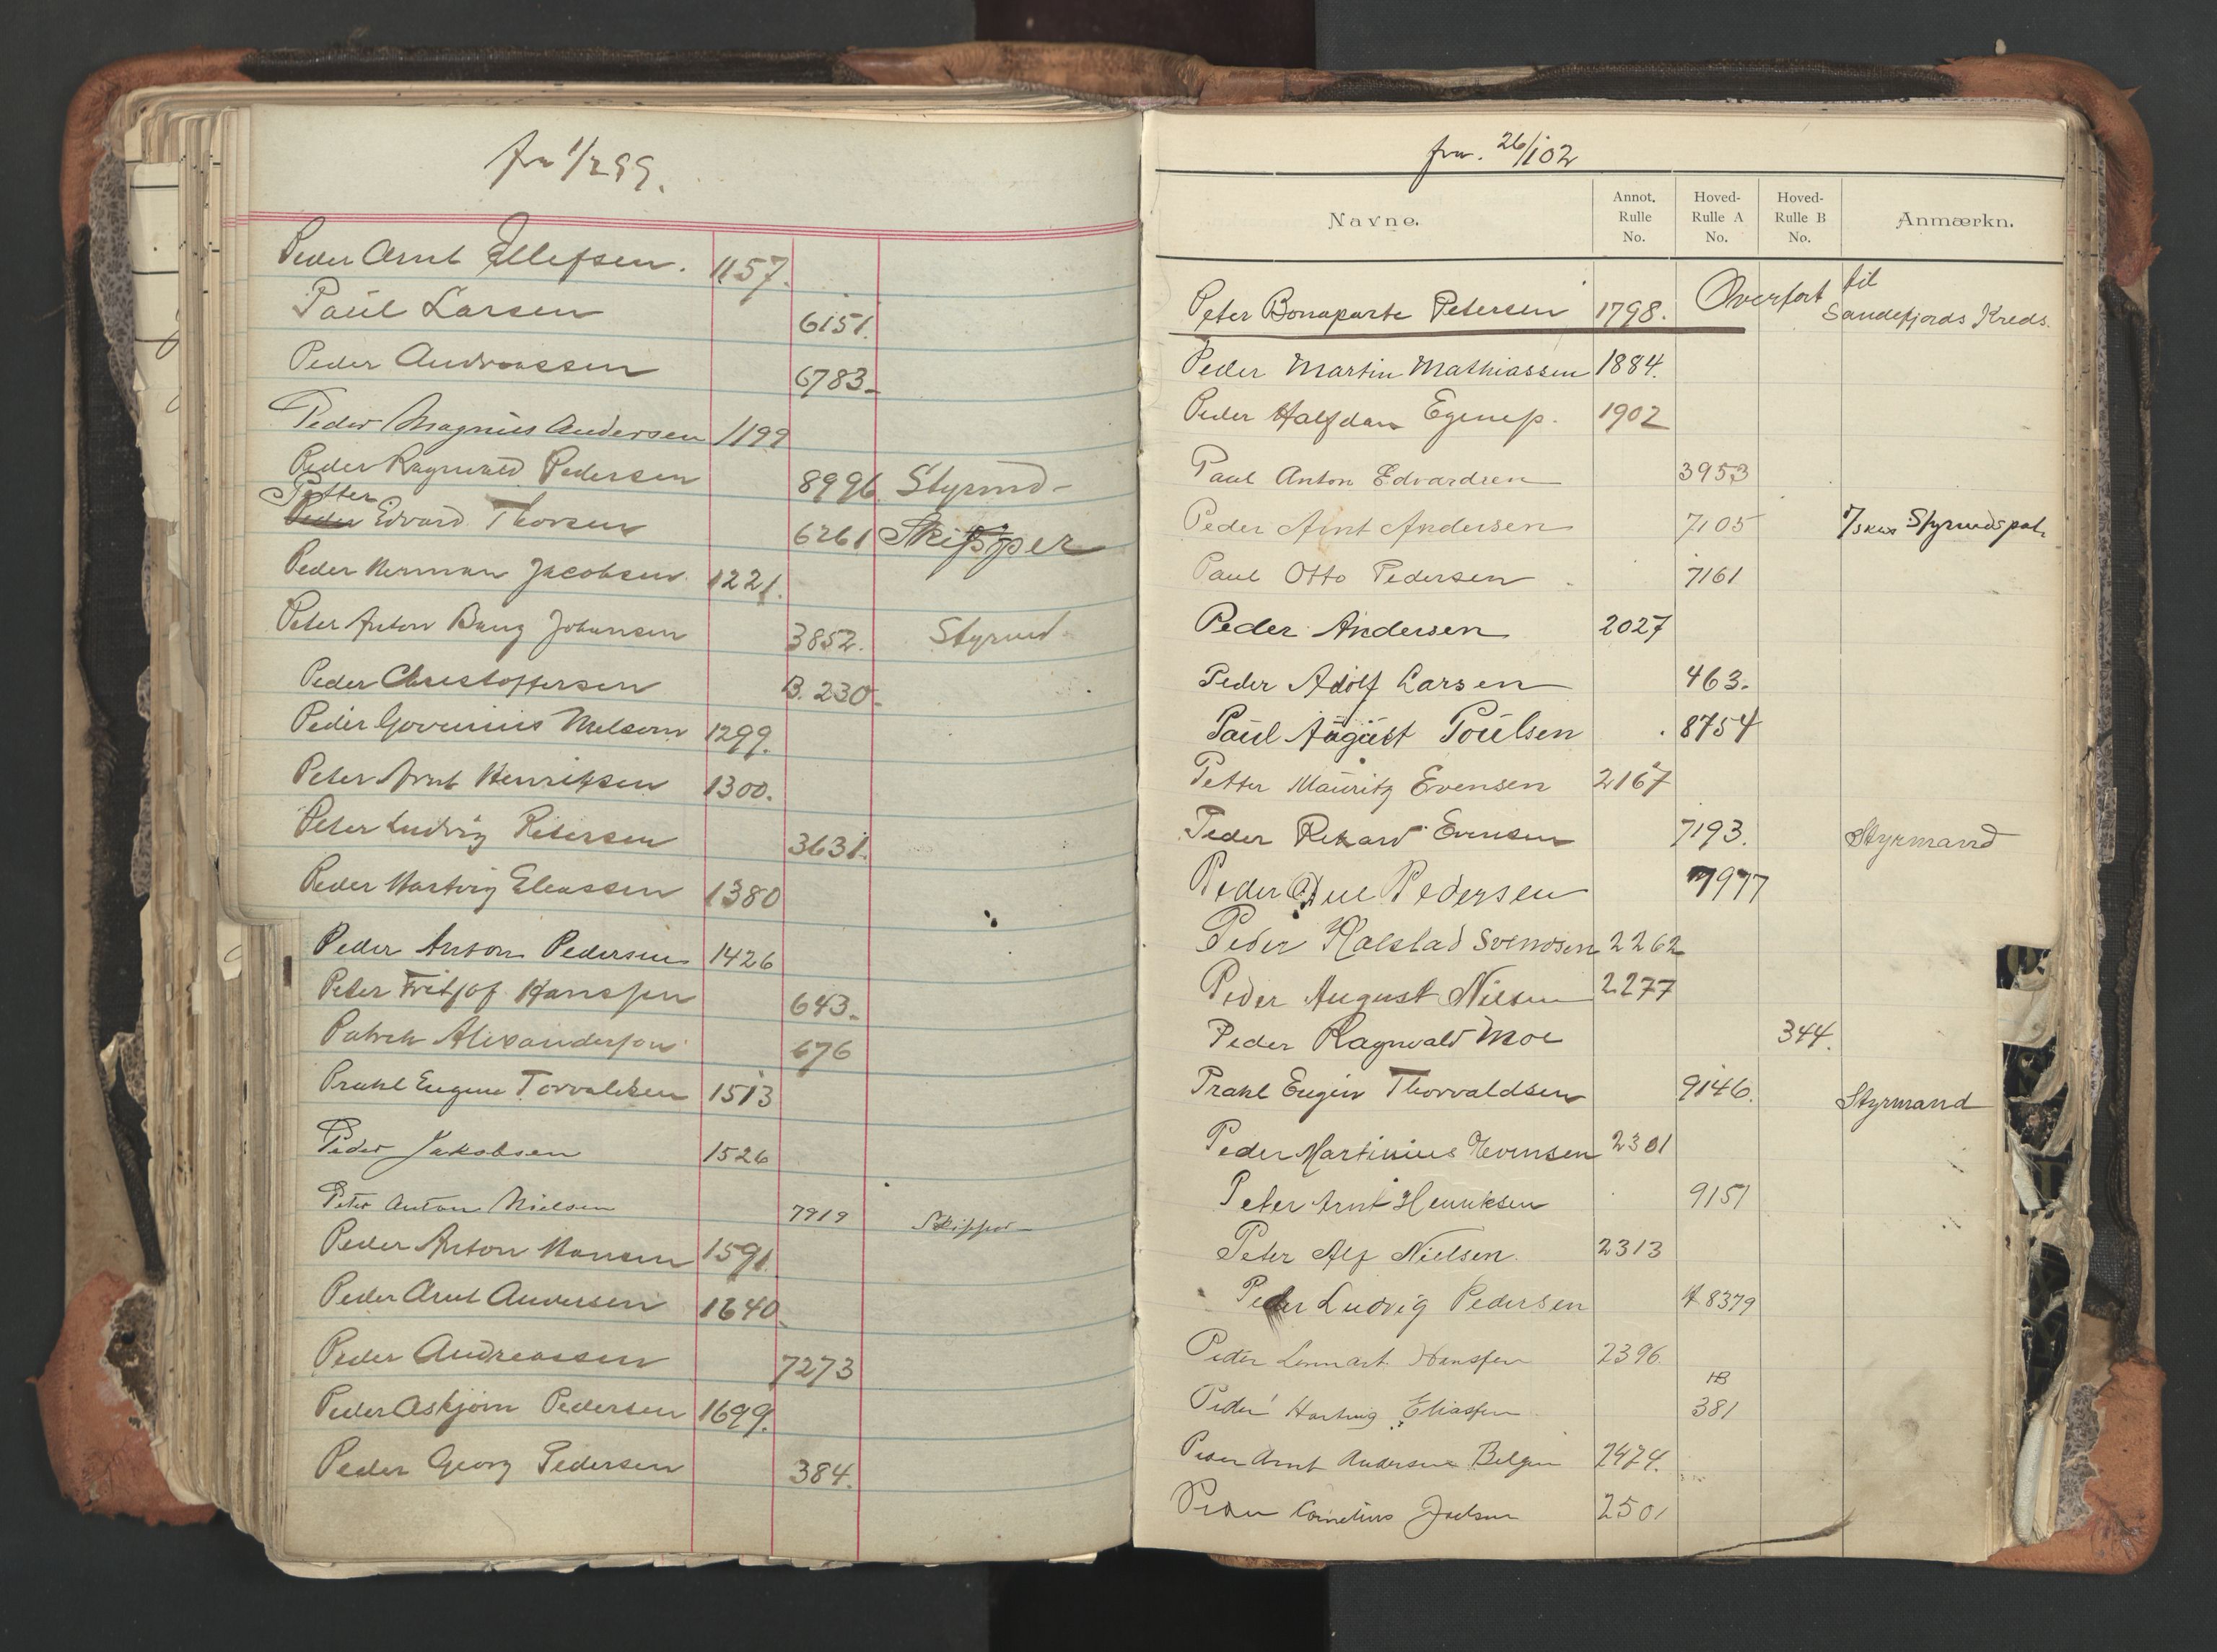 fra 1/2 99.
Peder Arnt Ellefsen. 1157.
Paul Larsen 6151.
Peder Andreassen 6783-
Peder Magnus Andersen 1199
Peder Ragnvald Pedersen 8996 Styrmd-
Petter
Peder Edvard Thorsen 6261 Skipper
Peder Herman Jacobsen 1221.
Peter Anton Bang Johansen 3852. Styrmd
Peder Christoffersen B. 230-
Peder Govenius Melsom 1299.
Peter Arnt Henriksen 1300.
Peter Ludvig Petersen 3631.
Peder Hartvig Eleassen 1380
Peder Anton Pedersen 1426
Peter Fritjof Hanssen 643-
Patrek Alexandersson 676
Prahl Eugene Torvaldsen 1513
Peder Jakobsen 1526
Peter Anton Nielsen 7919 Skipper
Peder Anton Hansen 1591.
Peder Arnt Andersen 1640-
Peder Andreassen 7273
Peder Asbjørn Pedersen 1699.
Peder Georg Pedersen 384.
fra. 26/1 02
Navne. Annot. Rulle No. Hoved-Rulle A No. Hoved-Rulle B No. Anmærkn.
Peter Bonaparte Petersen 1798. Overført til
Sandefjords Kreds.
Peder Martin Mathiassen 1884.
Peder Halfdan 1902
Paul Anton Edvardsen 3953
Peder Arnt Andersen 7105 Styrmds pat.
Paul Otto Pedersen 7161
Peder Andersen 2027
Peder Adolf Larsen 463.
Paul August Poulsen 8754
Petter Mauritz Evensen 2167
Peder Rikard Evensen 7193. Styrmand
Peder Due Pedersen 7977
Peder Kalstad Svendsen 2262
Peder August Nilsen 2277
Peder Ragnvald Moe 344.
Prahl Eugen Thorvaldsen 9146. Styrmand
Peder Martinius Evensen 2301
Peter Arnt Henriksen 9151
Peter Alf Nielsen. 2313
Peder Ludvig Pedersen A 8379
Peder Lennart Hanssen 2396.
HB
Peder Hartvig Eliassen 381
Peder Arnt Andersen 2474.
Peder Cornelius 2501